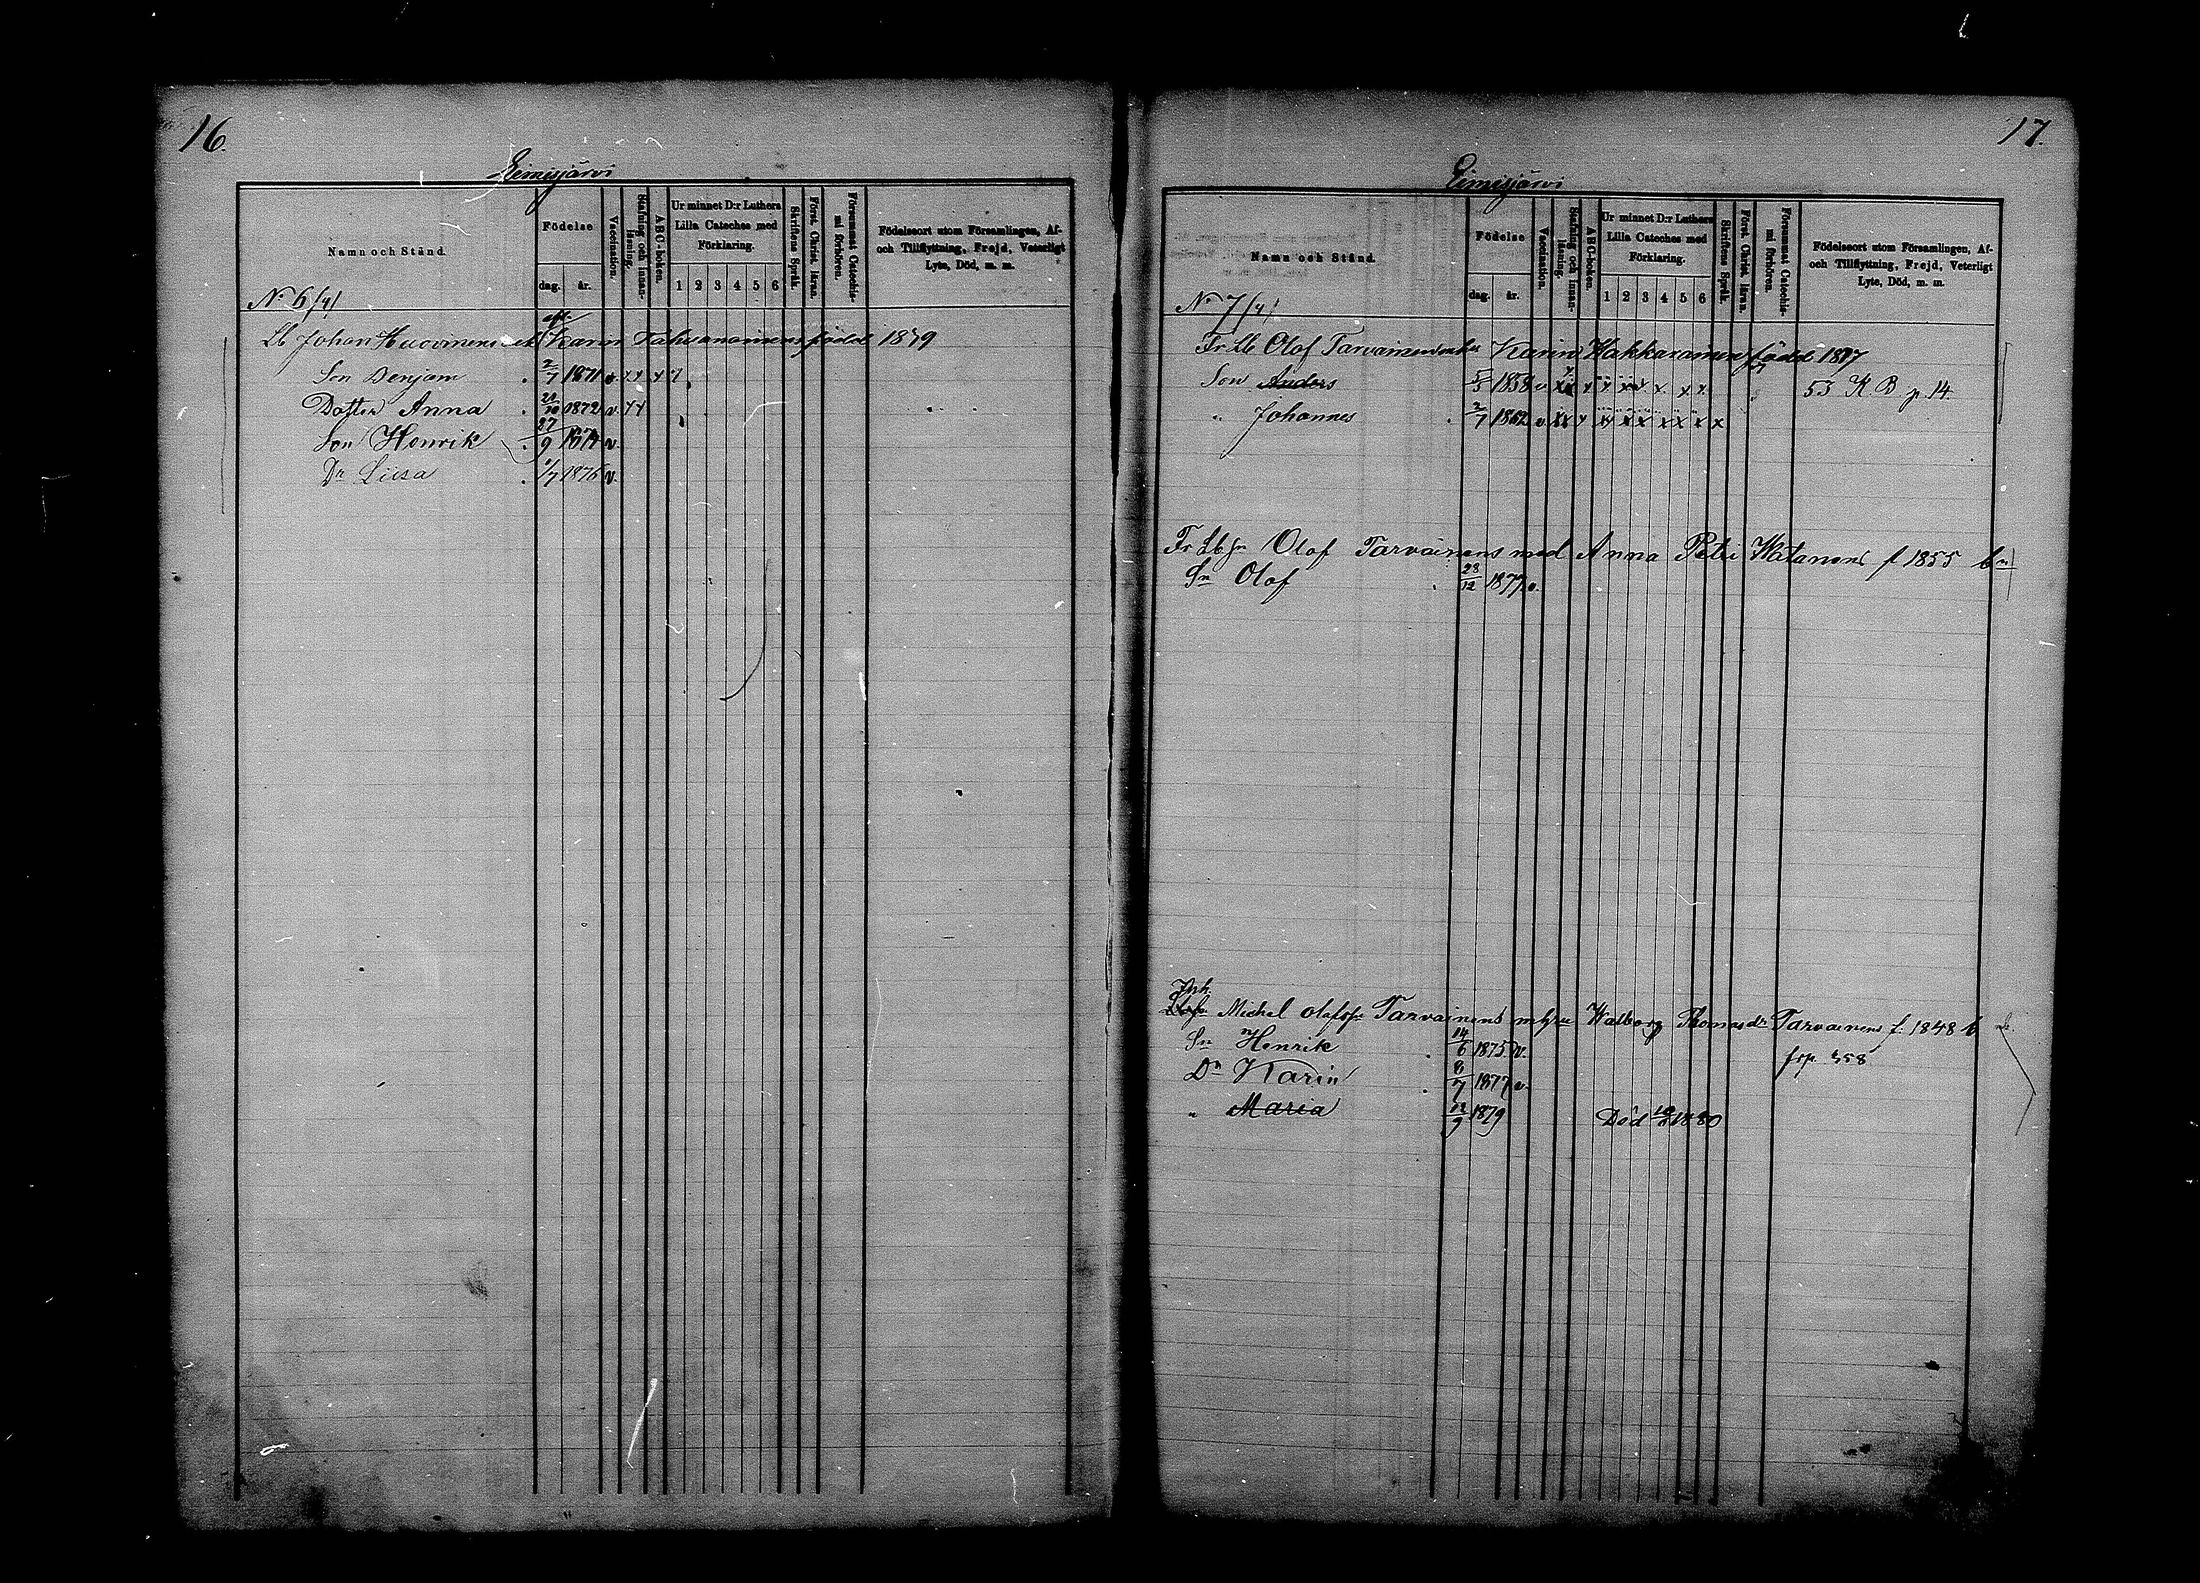 16.
Eimisjärvi
Namn och Stånd.
Födelse
dag. år.
Vaccination.
Stafning och innan-läsning.
ABC-boken.
Ur minnet D:r Luthers Lilla Cateches med Förklaring.
1 2 3 4 5 6
Skriftens Språk.
Först. Christ. läran.
Försummat Catechis-mi förhören.
Födelseort utom Församlingen, Af- och Tillflyttning, Frejd, Veterligt Lyte, Död, m. m.
No 6 /4/
Lb Johan Huovinens Karin född 1839
Son Benjam . 2/7 1871 v x x x 1
Dotter Anna . /10 1872 v. x x
Son Henrik . 27/9 1874 v.
Dr Liisa . /7 1876 v.
17.
Eimisjärvi
Namn och Stånd.
Födelse
dag. år.
Vaccination.
Stafning och innan-läsning.
ABC-boken.
Ur minnet D:r Luthers Lilla Cateches med Förklaring.
1 2 3 4 5 6
Skriftens Språk.
Först. Christ. läran.
Försummat Catechis-mi förhören.
Födelseort utom Församlingen, Af- och Tillflyttning, Frejd, Veterligt Lyte, Död, m. m.
No 7 /4/
Fr Lb Olof Tarvainens Karin Hakkarainen född 1817
Son Anders 5/5 1858 v x x x x x x x x x 53 K. B p. 14.
" Johannes . 2/7 1862 v x x x x x x x x x x
Fr Lb sn Olof Tarvainens med Anna Petri Watanens f 1855 b
Sn Olof . 28/12 1877 v.
Inh.
Michel Olofss Tarvainens m hu Walborg Thomasdr Tarvainens f. 1848 b
Sn Henrik . 14/6 1875 v. frp. 358
Dr Karin . 8/7 1877 v.
" Maria 12/9 1879 Död 1880